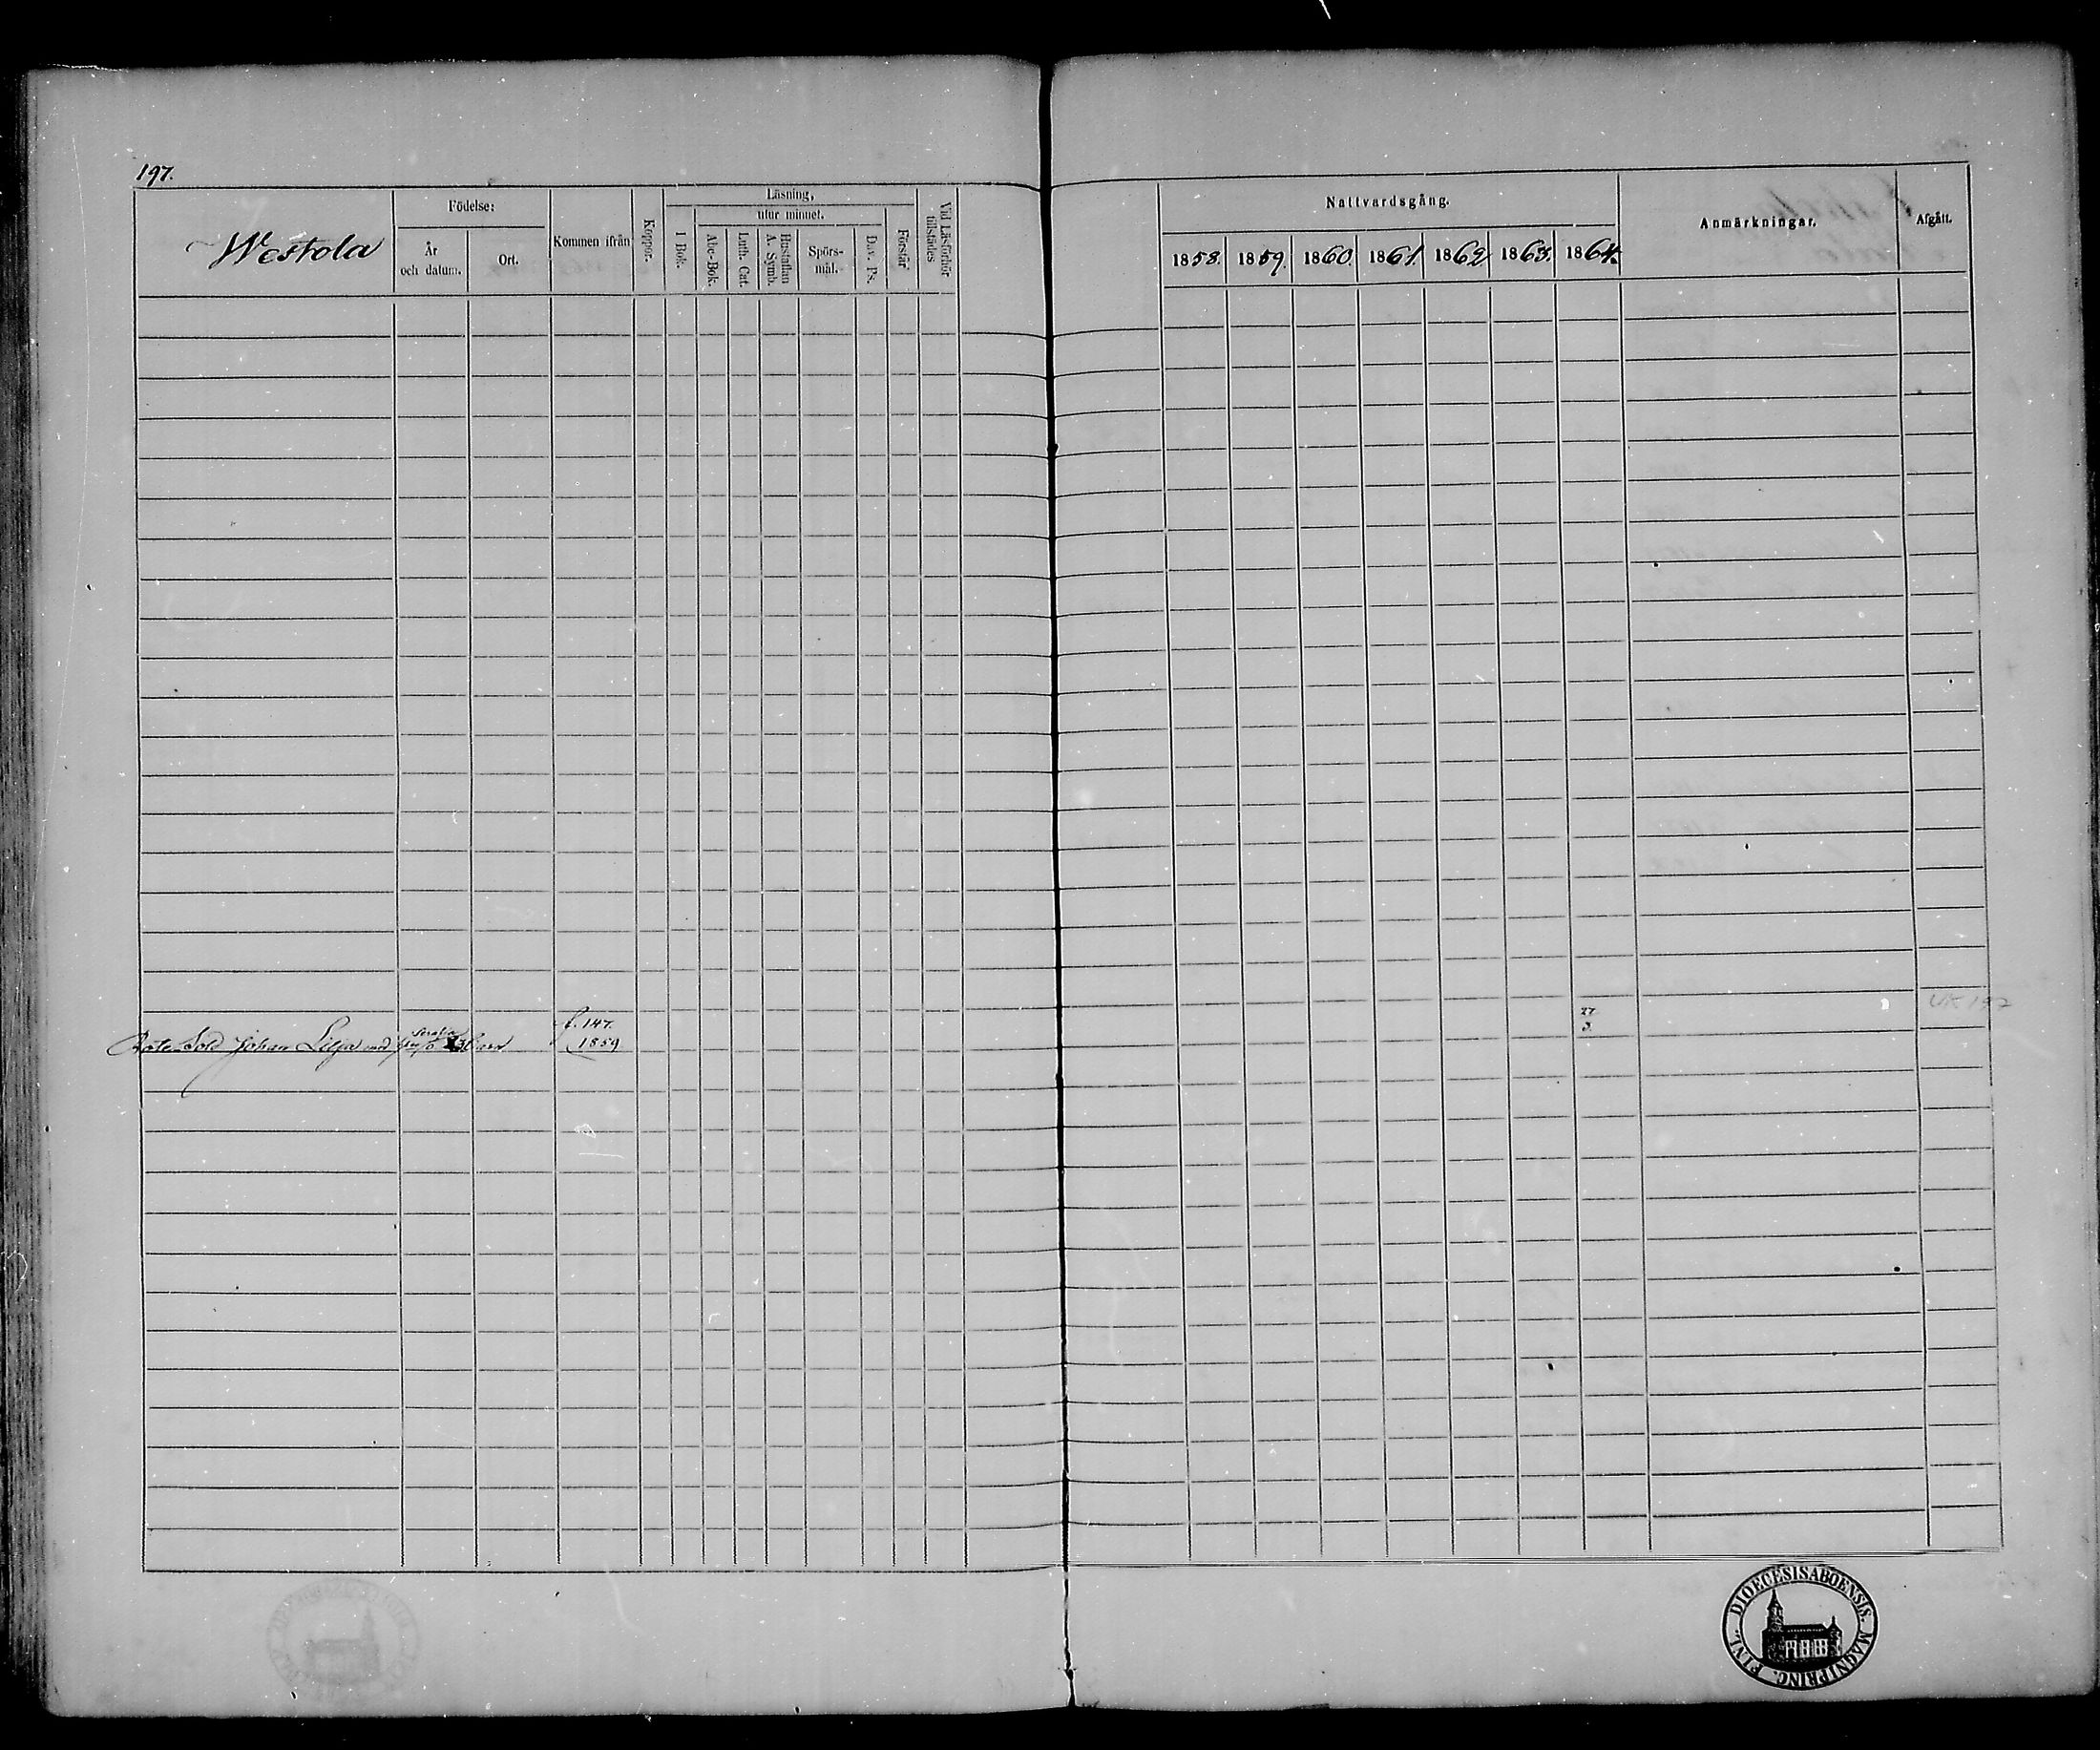 197.
Westola
Födelse:
År
och datum.
Ort.
Kommen ifrån
Koppor.
Läsning,
utur minnet.
I Bok.
Abc-Bok.
Luth. Cat.
Hustaflan
A. Symb.
Spörs-
mål.
Dav. Ps.
Förstår
Vid Läsförhör
tillstädes
Nattvardsgång.
1858. 1859. 1860. 1861. 1862 1863. 1864.
Anmärkningar.
Afgått.
f. 147.
Rote Sold Johan Lilja med
1859
27
3.
DIOECESIS ABOENSIS. MAGNI PRINC. FINL.